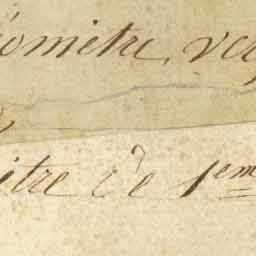 éomètre, ve
itre de 1em